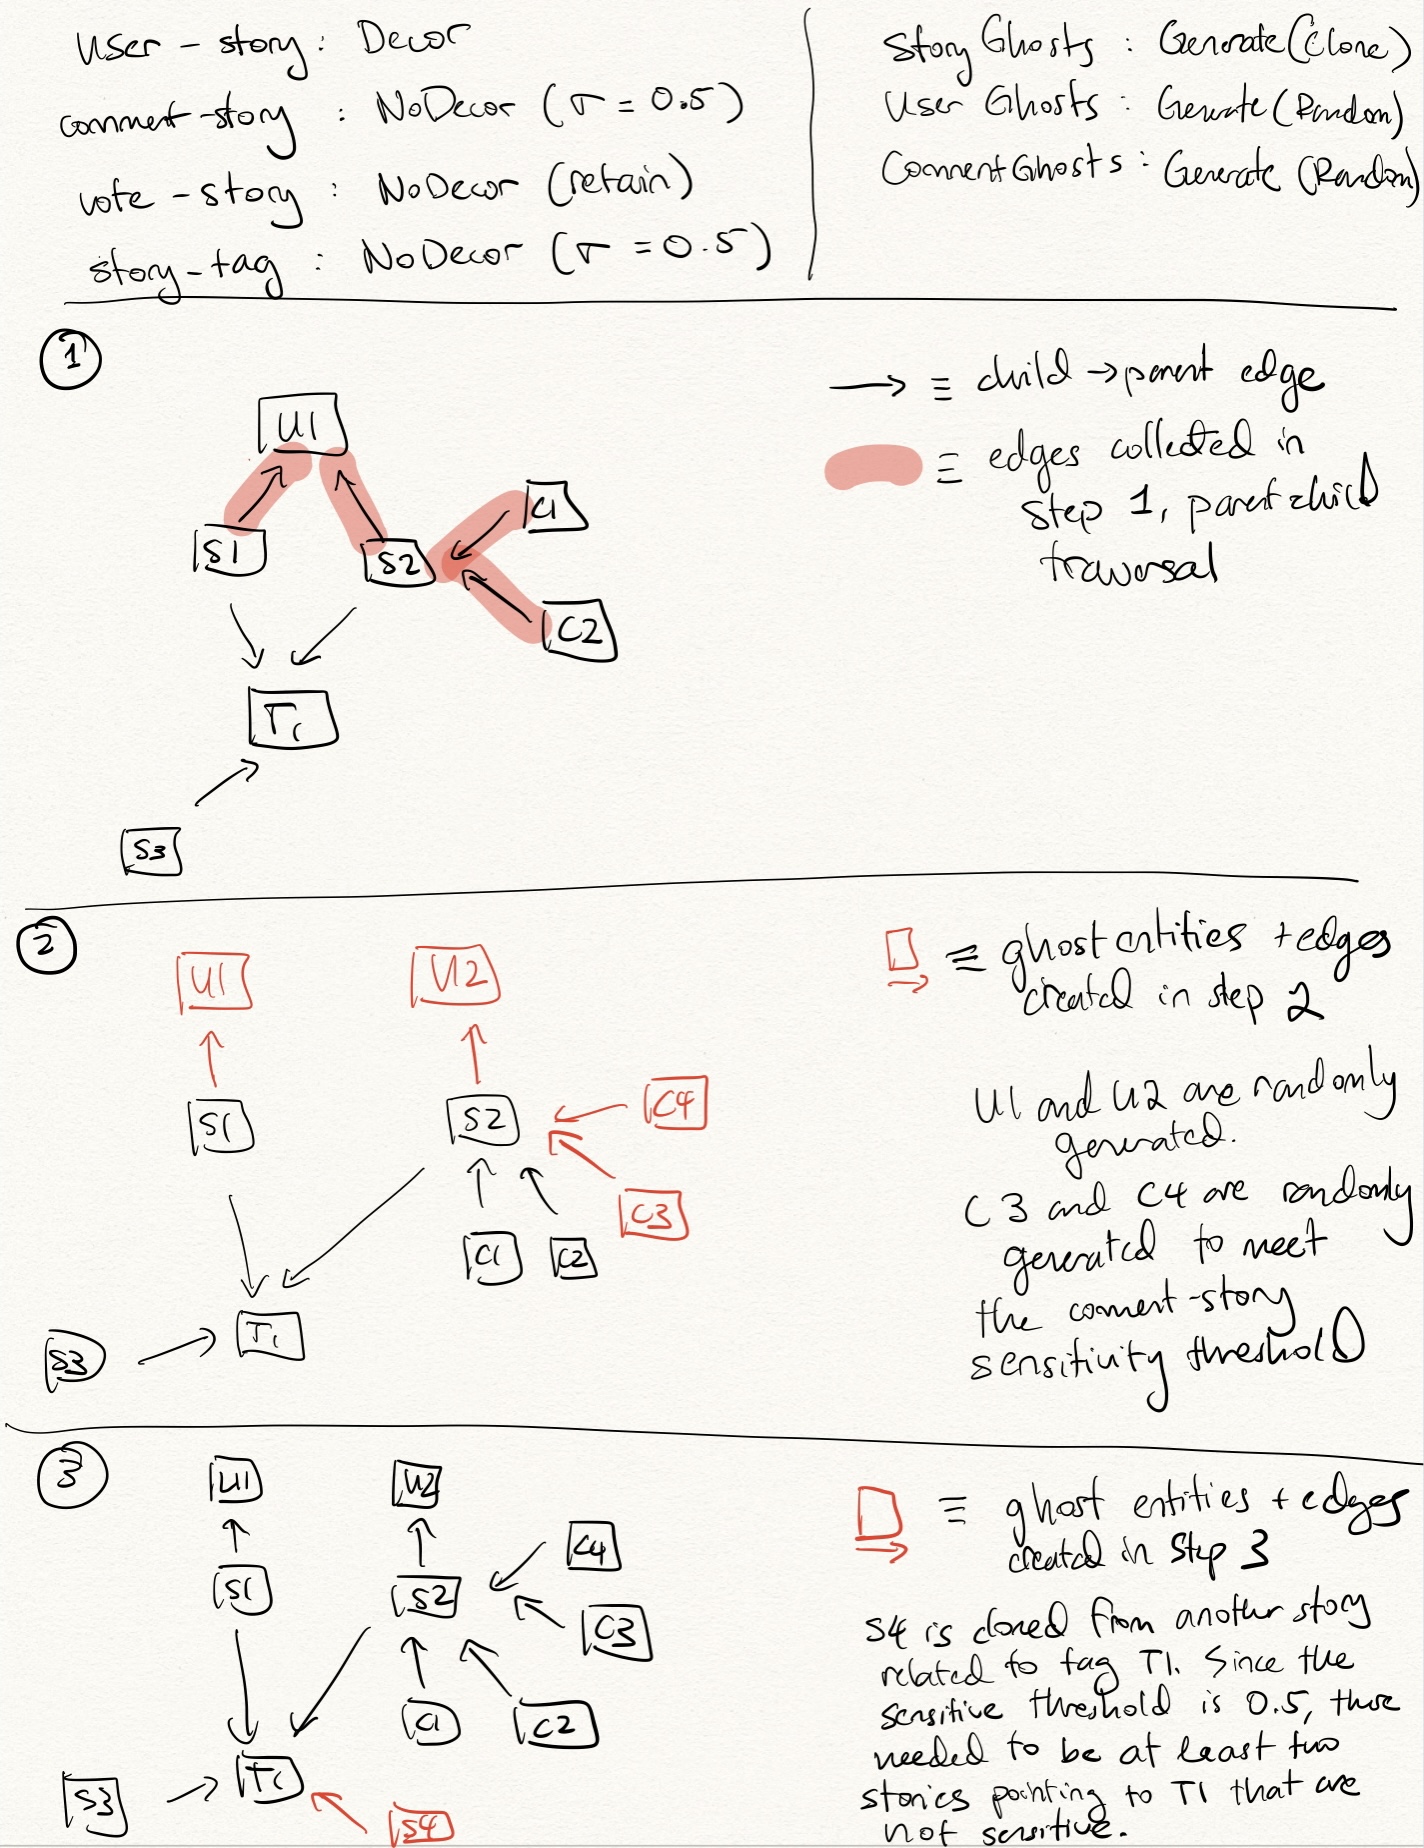 User - story : Decor
comment-story : NoDecor (σ = 0.5)
vote - story : NoDecor (retain)
story-tag : NoDecor (σ = 0.5)
Story Ghosts : Generate(Clone)
User Ghosts : Generate(Random)
Comment Ghosts : Generate (Random)
1
→ ≡ child → parent edge
≡ edges collected in
step 1, parent child
traversal
U1
C1
S1
S2
C2
T1
S3
2
U1
U2
≡ ghost entities + edges
created in step 2
S1
S2
C4
C3
C1
C2
T1
S3
U1 and U2 are randomly
generated.
C3 and C4 are randomly
generated to meet
the comment-story
sensitivity threshold
3
U1
U2
≡ ghost entities + edges
created in step 3
C4
S1
S2
C3
C1
C2
T1
S3
S4
S4 is cloned from another story
related to tag T1. Since the
sensitive threshold is 0.5, there
needed to be at least two
stories pointing to T1 that are
not sensitive.